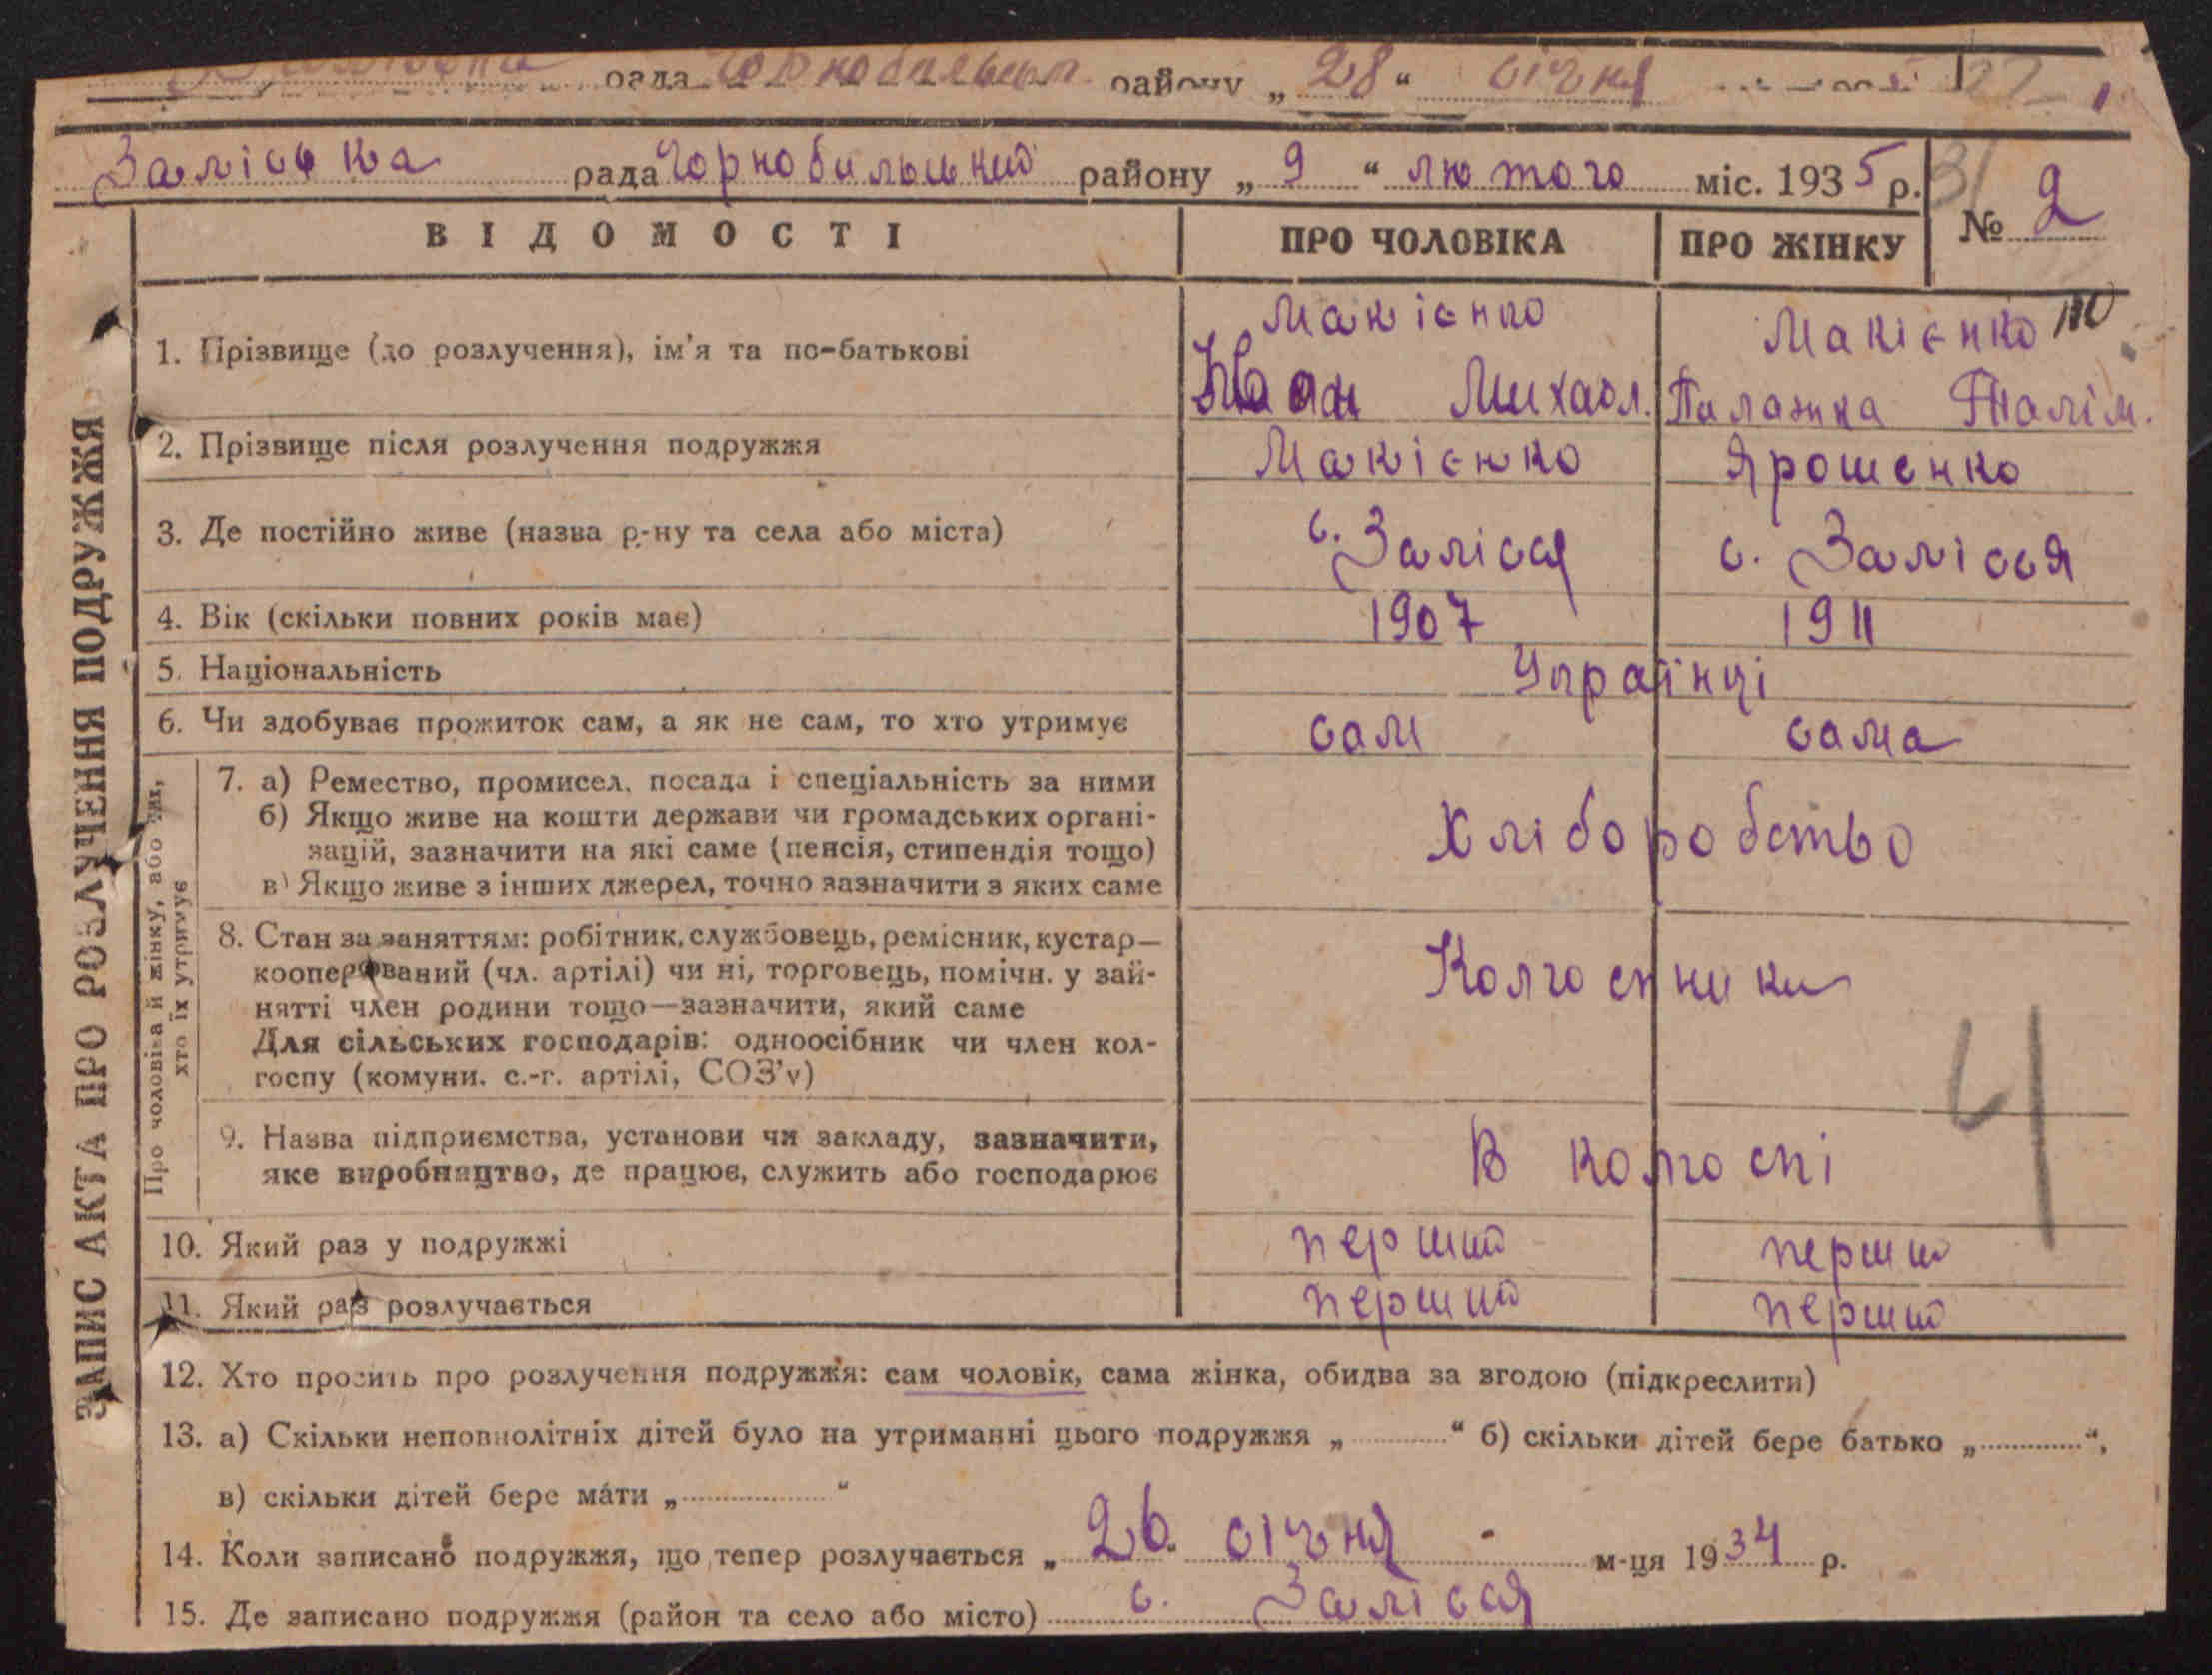 рада Чорнобильськ району „ 28 “ січня
Заліська рада Чорнобильський району „ 9 “ лютого міс. 1935 р.
ВІДОМОСТІ ПРО ЧОЛОВІКА ПРО ЖІНКУ № 2
ЗАПИС АКТА ПРО РОЗЛУЧЕННЯ ПОДРУЖЖЯ
1. Прізвище (до розлучення), ім'я та по-батькові
Макієнко
Іван Михаол.
Макієнко
Палажка
2. Прізвище після розлучення подружжя Макієнко Ярошенко
3. Де постійно живе (назва р-ну та села або міста) с. Залісся с. Залісся
4. Вік (скільки повних років має) 1907 1911
5. Національність Українці
6. Чи здобуває прожиток сам, а як не сам, то хто утримує сам сама
Про чоловіка й жінку, або тих,
хто їх утримує
7. а) Ремество, промисел, посада і спеціальність за ними
б) Якщо живе на кошти держави чи громадських органі-
зацій, зазначити на які саме (пенсія, стипендія тощо)
в) Якщо живе з інших джерел, точно зазначити з яких саме
Хліборобство
8. Стан за заняттям: робітник, службовець, ремісник, кустар—
кооперований (чл. артілі) чи ні, торговець, помічн. у зай-
нятті член родини тощо—зазначити, який саме
Для сільських господарів: одноосібник чи член кол-
госпу (комуни, с.-г. артілі, СОЗ'у)
Колгоспники
4
9. Назва підприємства, установи чи закладу, зазначити,
яке виробництво, де працює, служить або господарює
В колгоспі
10. Який раз у подружжі перший перший
11. Який раз розлучається перший перший
12. Хто просить про розлучення подружжя: сам чоловік, сама жінка, обидва за згодою (підкреслити)
13. а) Скільки неповнолітніх дітей було на утриманні цього подружжя „ “ б) скільки дітей бере батько „ “,
в) скільки дітей бере мати „ “
14. Коли записано подружжя, що тепер розлучається „ 26 “ січня м-ця 1934 р.
15. Де записано подружжя (район та село або місто) с. Залісся